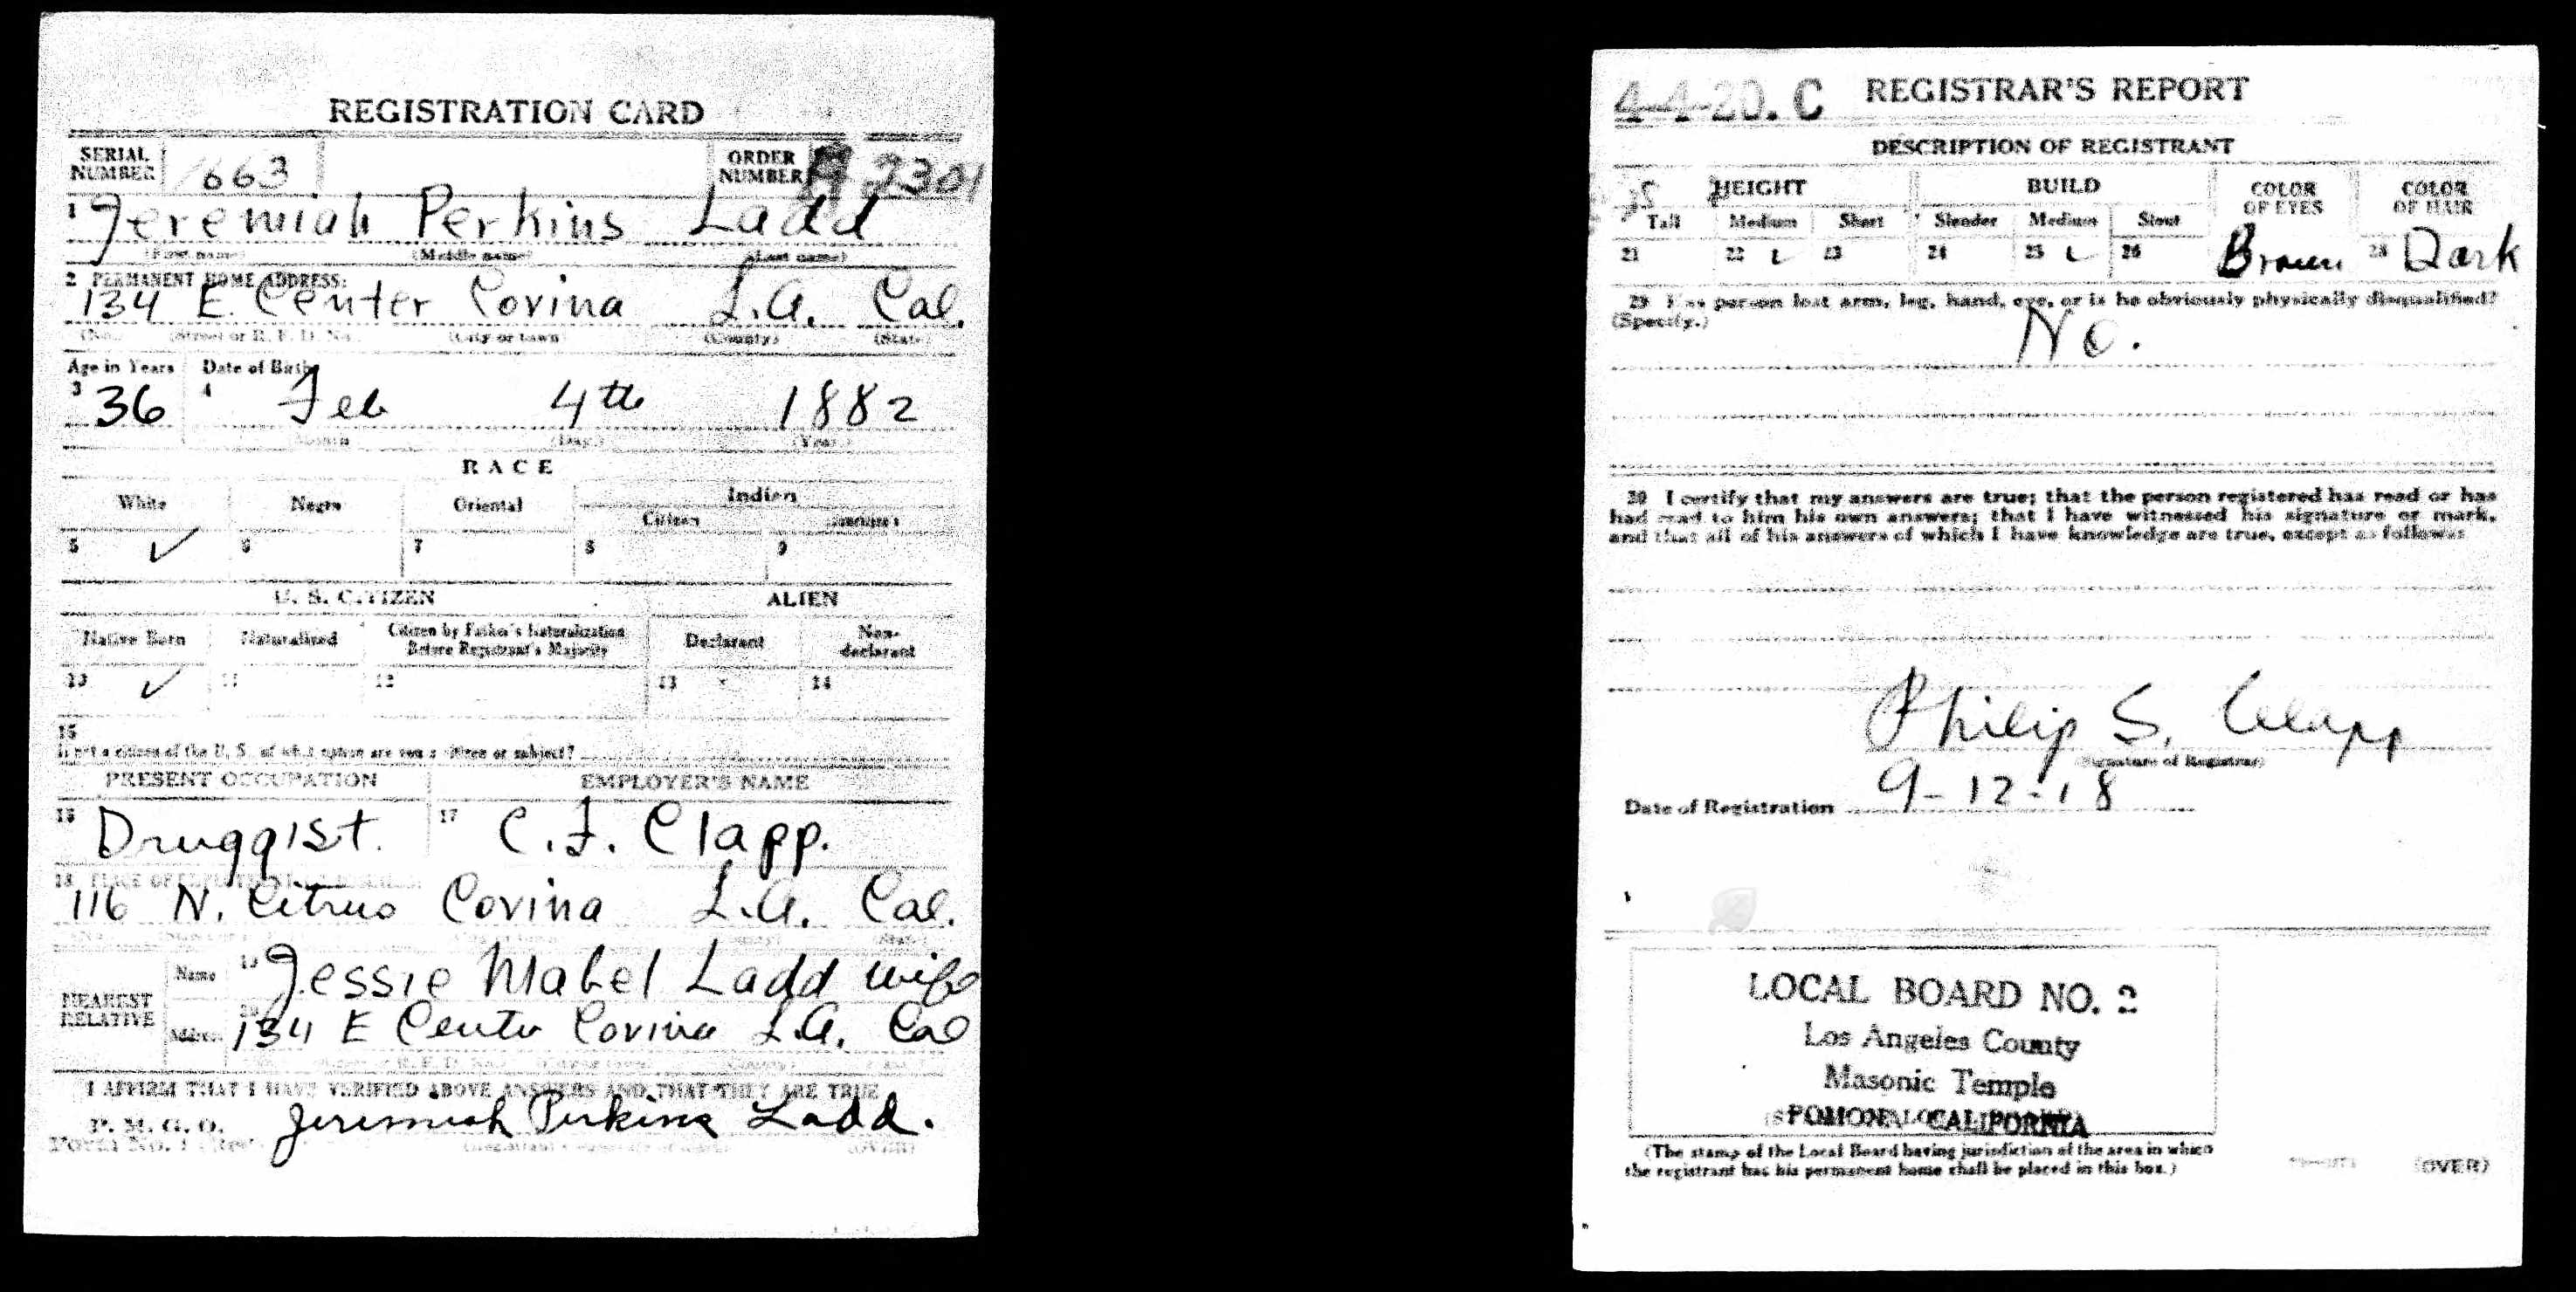 REGISTRATION CARD
SERIAL NUMBER 663 ORDER NUMBER A 2301
1 Jeremiah Perkins Ladd
(First name) (Middle name) (Last name)
2 PERMANENT HOME ADDRESS:
134 E. Center Covina L.A. Cal.
(No.) (Street or R. F. D. No.) (City or town) (County) (State)
Age in Years Date of Birth
3 36 4 Feb 4th 1882
(Month) (Day.) (Year.)
RACE
White Negro Oriental Indian
Citizen
5 ✓ 6 7 8 9
U. S. CITIZEN ALIEN
Native Born Naturalized Citizen by Father's Naturalization Before Registrant's Majority Declarant Non-declarant
10 ✓ 11 12 13 14
15
If not a citizen of the U. S., of what nation are you a citizen or subject?
PRESENT OCCUPATION EMPLOYER'S NAME
16 Druggist. 17 C. F. Clapp.
18 PLACE OF
116 N. Citrus Covina L.A. Cal.
NEAREST RELATIVE
Name 19 Jessie Mabel Ladd wife
Address 20 134 E Center Covina L.A. Cal
I AFFIRM THAT I HAVE VERIFIED ABOVE ANSWERS AND THAT THEY ARE TRUE
P. M. G. O.
Form No. 1 Jeremiah Perkins Ladd.
(OVER)
4-4-20. C REGISTRAR'S REPORT
DESCRIPTION OF REGISTRANT
HEIGHT BUILD COLOR OF EYES COLOR OF HAIR
Tall Medium Short Slender Medium Stout
21 22 ✓ 23 24 25 ✓ 26 Brown 28 Dark
29 Has person lost arm, leg, hand, eye, or is he obviously physically disqualified?
(Specify.) No.
30 I certify that my answers are true; that the person registered has read or has
had read to him his own answers; that I have witnessed his signature or mark,
and that all of his answers of which I have knowledge are true, except as follows:
Philip S. Clapp
(Signature of Registrar)
Date of Registration 9-12-18
LOCAL BOARD NO. 2
Los Angeles County
Masonic Temple
POMONA CALIFORNIA
(The stamp of the Local Board having jurisdiction of the area in which
the registrant has his permanent home shall be placed in this box.)
(OVER)